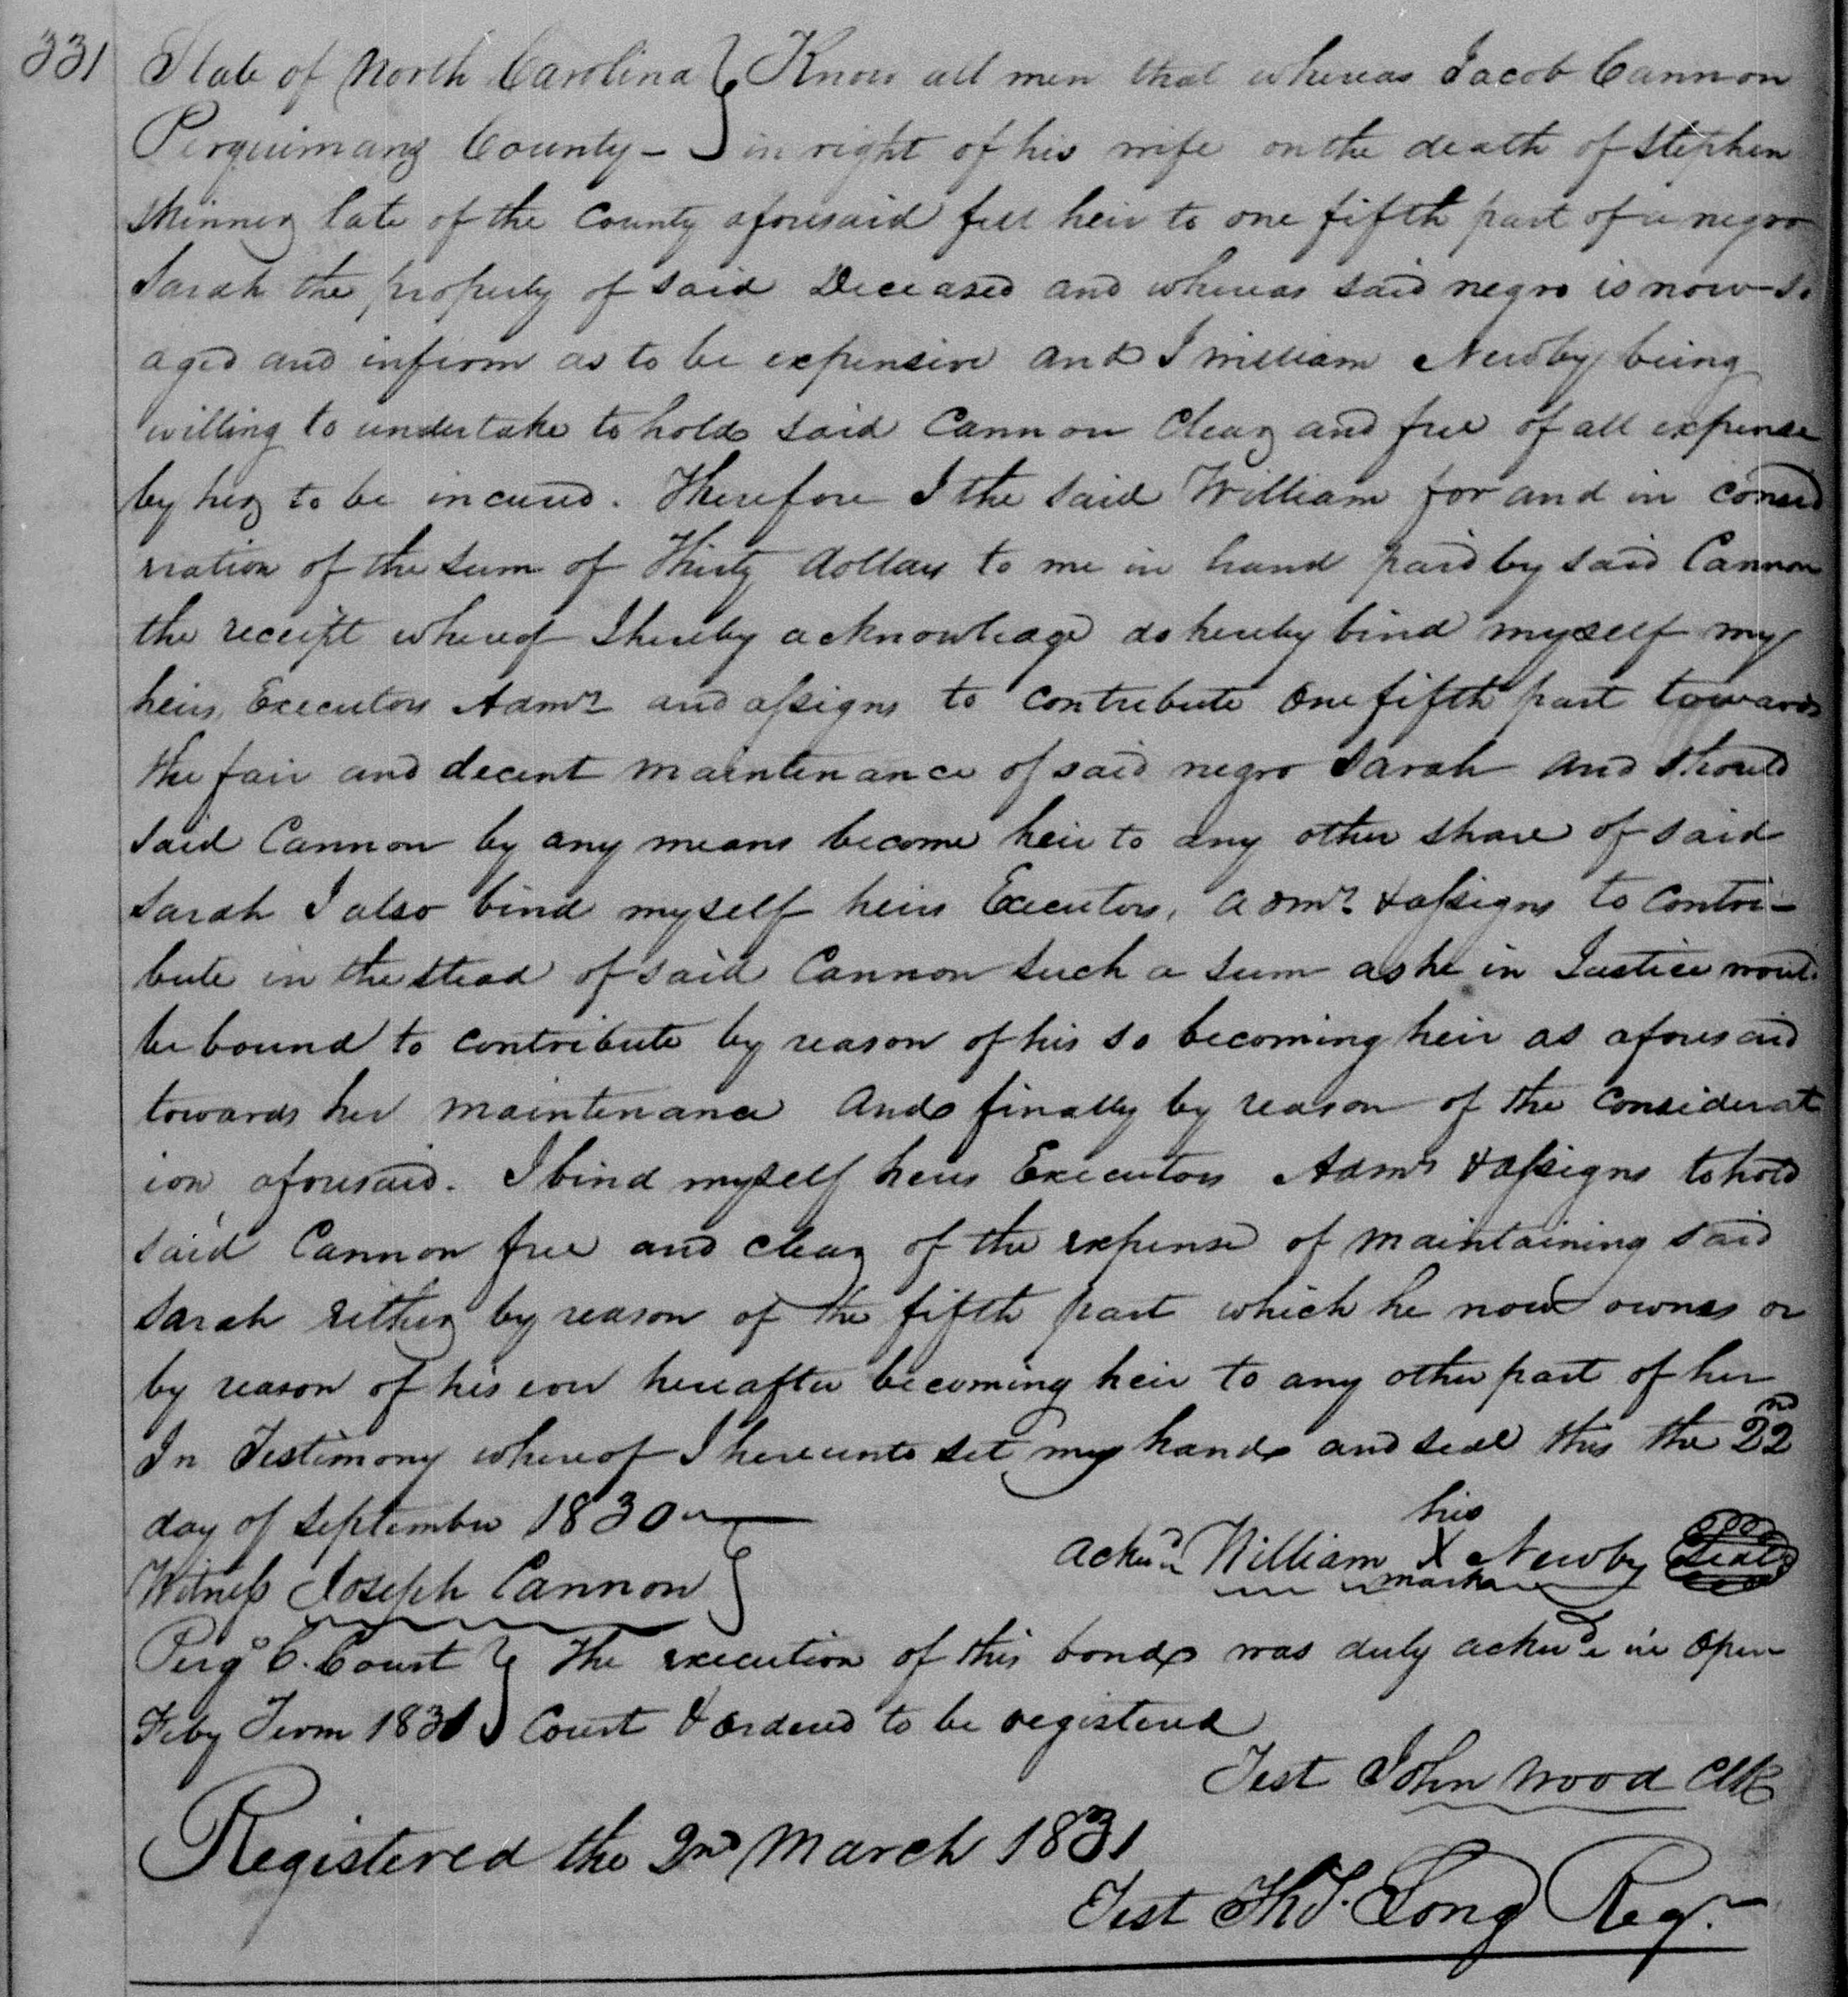 331
State of North Carolina } Know all men that whereas Jacob Cannon
Perquimans County - } in right of his wife on the death of Stephen
Skinner late of the County aforesaid fell heir to one fifth part of a negro
Sarah the property of said Deceased and whereas said negro is now so
aged and infirm as to be expensive and I William Newby being
willing to undertake to hold said Cannon Clear and free of all expense
by her to be incured. Therefore I the said William for and in consid
eration of the sum of Thirty dollars to me in hand paid by said Cannon
the receipt whereof I hereby acknowledge do hereby bind myself my
heirs, Executors Admrs and assigns to contribute one fifth part towards
the fair and decent maintenance of said negro Sarah and should
said Cannon by any means become heir to any other share of said
Sarah I also bind myself heirs Executors, admrs & assigns to contri-
bute in the stead of said Cannon such a sum as he in Justice would
be bound to contribute by reason of his so becoming heir as aforesaid
towards her maintenance and finally by reason of the considerat
ion aforesaid. I bind myself heirs Executors Admrs & assigns to hold
said Cannon free and clear of the expense of maintaining said
Sarah either by reason of the fifth part which he now ownes or
by reason of his ever hereafter becoming heir to any other part of her
In Testimony whereof I hereunto set my hand and seal this the 22nd
day of September 1830
his
Witness Joseph Cannon } Acknd William X Newby Seal
mark
Perqs C. Court } The execution of this bond was duly acknd in open
Feby Term 1831 } Court & ordered to be registered
Test John Wood Clk
Registered the 2nd March 1831
Test Th S. Long Regr